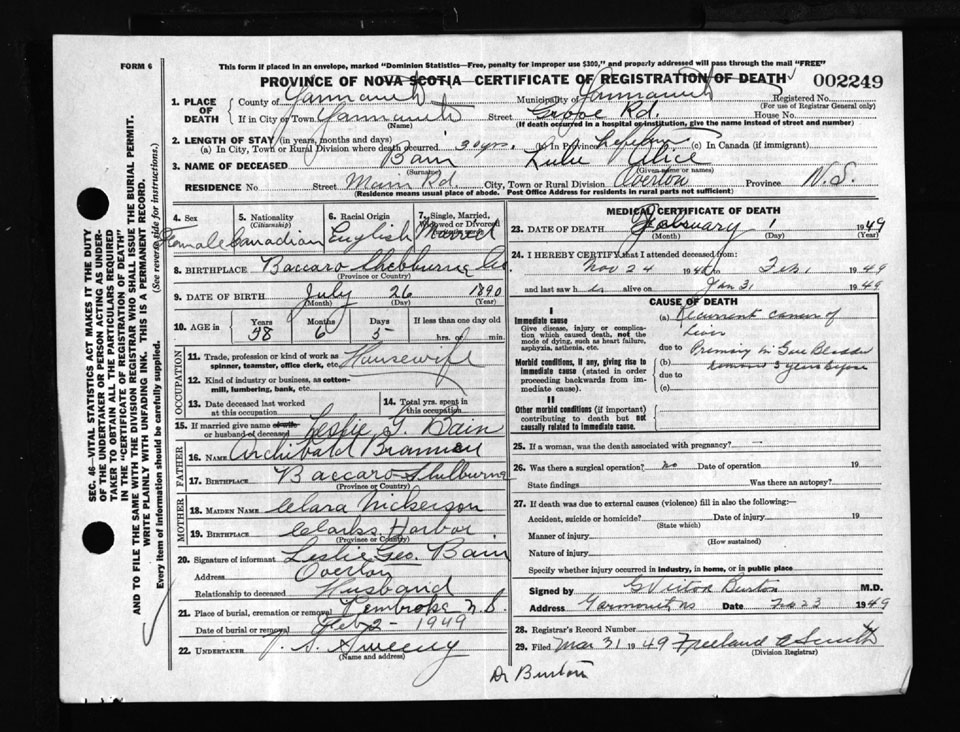 FORM 6
This form if placed in an envelope, marked "Dominion Statistics—Free, penalty for improper use $300," and properly addressed will pass through the mail "FREE"
PROVINCE OF NOVA SCOTIA—CERTIFICATE OF REGISTRATION OF DEATH
002249
1. PLACE OF DEATH
County of Yarmouth Municipality of Yarmouth Registered No.
(For use of Registrar General only)
If in City or Town Yarmouth Street Rd. House No.
(Name) (If death occurred in a hospital or institution, give the name instead of street and number)
2. LENGTH OF STAY (in years, months and days)
(a) In City, Town or Rural Division where death occurred 30 yrs. (b) In Province Lifetime (c) In Canada (if immigrant)
3. NAME OF DECEASED Bain Lulie Alice
(Surname) (Given name or names)
RESIDENCE No Street Main Rd. City, Town or Rural Division Overton Province N.S.
(Residence means usual place of abode. Post Office Address for residents in rural parts not sufficient)
4. Sex Female
5. Nationality (Citizenship) Canadian
6. Racial Origin English
7. Single, Married, Widowed or Divorced Married
8. BIRTHPLACE Baccaro Shelburne Co.
(Province or Country)
9. DATE OF BIRTH July 26 1890
(Month) (Day) (Year)
10. AGE in Years 58 Months 6 Days 5 If less than one day old hrs. or min.
OCCUPATION
11. Trade, profession or kind of work as spinner, teamster, office clerk, etc. Housewife
12. Kind of industry or business, as cotton-mill, lumbering, bank, etc.
13. Date deceased last worked at this occupation
14. Total yrs. spent in this occupation
15. If married give name of wife or husband of deceased Leslie G. Bain
FATHER
16. NAME Archibald Brannen
17. BIRTHPLACE Baccaro Shelburne
(Province or Country)
MOTHER
18. MAIDEN NAME Clara Nickerson
19. BIRTHPLACE Clarks Harbor
(Province or Country)
20. Signature of informant Leslie Geo. Bain
Address Overton
Relationship to deceased Husband
21. Place of burial, cremation or removal Pembroke N.S.
Date of burial or removal Feby 2 - 1949
22. UNDERTAKER Sweeny
(Name and address)
MEDICAL CERTIFICATE OF DEATH
23. DATE OF DEATH February 1 1949
(Month) (Day) (Year)
24. I HEREBY CERTIFY that I attended deceased from:
Nov 24 1948 to Feb 1 1949
and last saw her alive on Jan 31 1949
CAUSE OF DEATH
I
Immediate cause
Give disease, injury or complication which caused death, not the mode of dying, such as heart failure, asphyxia, asthenia, etc.
(a) Recurrent cancer of Liver
due to Primary in Gall Bladder
removed 3 years before
Morbid conditions, if any, giving rise to immediate cause (stated in order proceeding backwards from immediate cause).
(b)
due to
(c)
II
Other morbid conditions (if important) contributing to death but not causally related to immediate cause.
25. If a woman, was the death associated with pregnancy? —
26. Was there a surgical operation? no Date of operation 19
State findings Was there an autopsy?
27. If death was due to external causes (violence) fill in also the following:—
Accident, suicide or homicide? Date of injury 19
(State which)
Manner of injury
(How sustained)
Nature of injury
Specify whether injury occurred in industry, in home, or in public place
Signed by G Victor Burton M.D.
Address Yarmouth NS Date 1949
28. Registrar's Record Number
29. Filed Mar 31 1949 Freeland Smith
(Division Registrar)
Dr Burton
SEC. 46—VITAL STATISTICS ACT MAKES IT THE DUTY
OF THE UNDERTAKER OR PERSON ACTING AS UNDERTAKER TO OBTAIN ALL THE PARTICULARS REQUIRED
IN THE "CERTIFICATE OF REGISTRATION OF DEATH"
AND TO FILE THE SAME WITH THE DIVISION REGISTRAR WHO SHALL ISSUE THE BURIAL PERMIT.
WRITE PLAINLY WITH UNFADING INK. THIS IS A PERMANENT RECORD.
Every item of information should be carefully supplied. (See reverse side for instructions.)